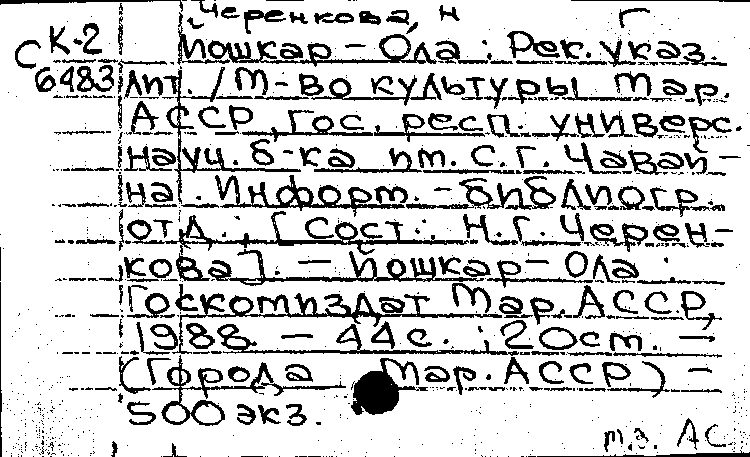 Черенкова, Н Г
К-2 Йошкар-Ола : Рек. указ.
С 6483 лит. / М-во культуры Мар.
АССР, Гос. респ. универс.
науч. б-ка им. С.Г. Чавай-
на. Информ.-библиогр.
отд.; [Сост.: Н.Г. Черен-
кова]. — Йошкар-Ола :
Госкомиздат Мар. АССР,
1988. — 44 с. ; 20 см. —
(Города Мар. АССР) —
500 экз.
т.з. АС